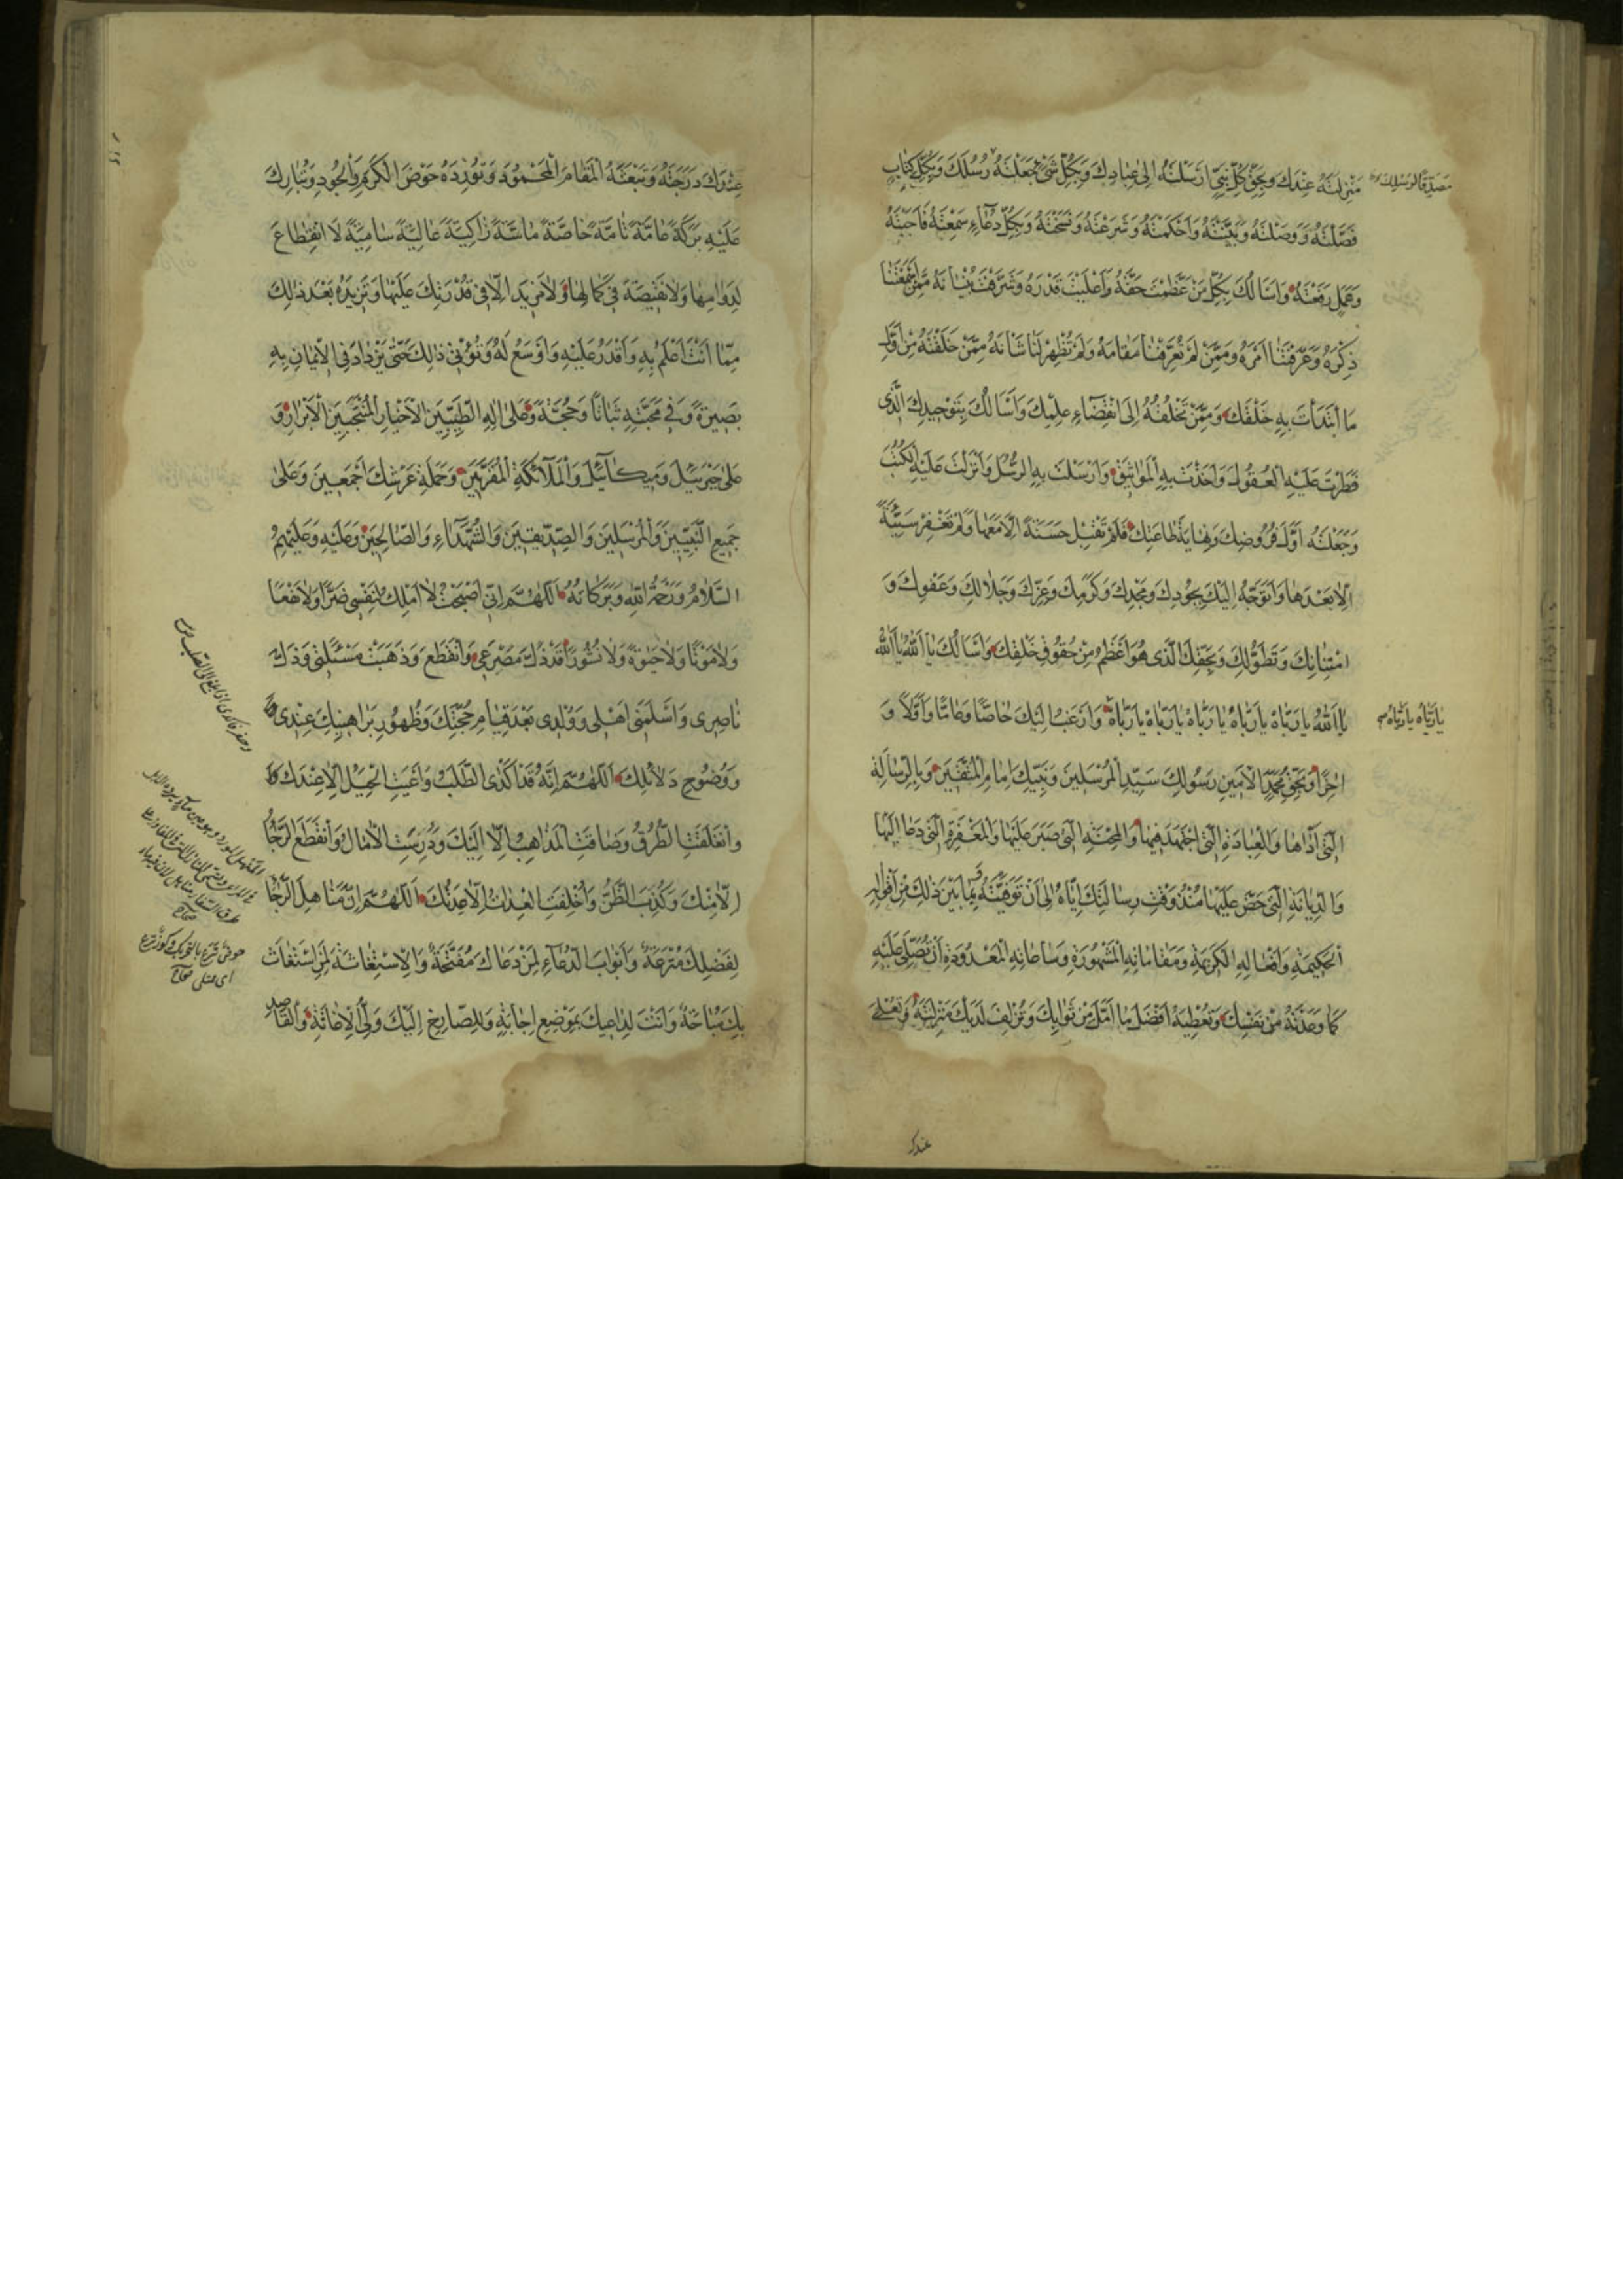 مَنْزِلَتَهُ عِنْدَكَ وَبِحَقِّ كُلِّ نَبِيٍّ اَرْسَلْتَهُ اِلىٰ عِبٰادِكَ وَبِكُلِّ شَىْءٍ جَعَلْتَهُ رُسُلَكَ وَبِكُلِّ كِتٰابٍ
مُصَدِّقًا لِرُسُلِكَ
فَصَّلْتَهُ وَوَصَلْتَهُ وَبَيَّنْتَهُ وَاَحْكَمْتَهُ وَشَرَعْتَهُ وَنَسَخْتَهُ وَبِكُلِّ دُعٰٓاءٍ سَمِعْتَهُ فَاَجَبْتَهُ
وَعَمَلٍ رَفَعْتَهُ وَاَسْاَلُكَ بِكُلِّ مَنْ عَظَّمْتَ حَقَّهُ وَاَعْلَيْتَ قَدْرَهُ وَشَرَّفْتَ بُنْيٰانَهُ مِمَّنْ اَسْمَعْتَنٰا
ذِكْرَهُ وَعَرَّفْتَنٰا اَمْرَهُ وَمِمَّنْ لَمْ تُعَرِّفْنٰا مَقٰامَهُ وَلَمْ تُظْهِرْ لَنٰا شَاْنَهُ مِمَّنْ خَلَقْتَهُ مِنْ اَوَّلِ
مَا ابْتَدَاْتَ بِهِ خَلْقَكَ وَمِمَّنْ تَخْلُقُهُ اِلَى انْقِضٰٓاءِ عِلْمِكَ وَاَسْاَلُكَ بِتَوْحِيدِكَ الَّذِى
فَطَرْتَ عَلَيْهِ الْعُقُولَ وَاَخَذْتَ بِهِ الْمَوٰاثِيقَ وَاَرْسَلْتَ بِهِ الرُّسُلَ وَاَنْزَلْتَ عَلَيْهِ الْكُتُبَ
وَجَعَلْتَهُ اَوَّلَ فُرُوضِكَ وَنِهٰايَةَ طٰاعَتِكَ فَلَمْ تَقْبَلْ حَسَنَةً اِلّٰا مَعَهٰا وَلَمْ تَغْفِرْ سَيِّئَةً
اِلّٰا بَعْدَهٰا وَاَتَوَجَّهُ اِلَيْكَ بِجُودِكَ وَمَجْدِكَ وَكَرَمِكَ وَعِزِّكَ وَجَلٰالِكَ وَعَفْوِكَ وَ
امْتِنٰانِكَ وَتَطَوُّلِكَ وَبِحَقِّكَ الَّذِى هُوَ اَعْظَمُ مِنْ حُقُوقِ خَلْقِكَ وَاَسْاَلُكَ يٰا اَللّٰهُ يٰا اَللّٰهُ
يٰا اَللّٰهُ يٰا رَبّٰاهُ يٰا رَبّٰاهُ يٰا رَبّٰاهُ يٰا رَبّٰاهُ يٰا رَبّٰاهُ وَاَرْغَبُ اِلَيْكَ خٰاصًّا وَعٰامًّا وَاَوَّلاً وَ
يٰا رَبّٰاهُ يٰا رَبّٰاهُ
اٰخِرًا وَبِحَقِّ مُحَمَّدٍ الْاَمِينِ رَسُولِكَ سَيِّدِ الْمُرْسَلِينَ وَنَبِيِّكَ اِمٰامِ الْمُتَّقِينَ وَبِالرِّسٰالَةِ
الَّتِى اَدّٰاهٰا وَالْعِبٰادَةِ الَّتِى اجْتَهَدَ فِيهٰا وَالْمِحْنَةِ الَّتِى صَبَرَ عَلَيْهٰا وَالْمَغْفِرَةِ الَّتِى دَعٰا اِلَيْهٰا
وَالدِّيٰانَةِ الَّتِى حَضَّ عَلَيْهٰا مُنْذُ وَقْتِ رِسٰالَتِكَ اِيّٰاهُ اِلىٰ اَنْ تَوَفَّيْتَهُ بِمٰا بَيْنَ ذٰلِكَ مِنْ اَقْوٰالِهِ
الْحَكِيمَةِ وَاَفْعٰالِهِ الْكَرِيمَةِ وَمَقٰامٰاتِهِ الْمَشْهُورَةِ وَسٰاعٰاتِهِ الْمَعْدُودَةِ اَنْ تُصَلِّىَ عَلَيْهِ
كَمٰا وَعَدْتَهُ مِنْ نَفْسِكَ وَتُعْطِيَهُ اَفْضَلَ مٰا اَمَّلَ مِنْ ثَوٰابِكَ وَتُزْلِفَ لَدَيْكَ مَنْزِلَتَهُ وَتُعْلِىَ
عندك
عِنْدَكَ دَرَجَتَهُ وَتَبْعَثَهُ الْمَقٰامَ الْمَحْمُودَ وَتُورِدَهُ حَوْضَ الْكَرَمِ وَالْجُودِ وَتُبٰارِكَ
عَلَيْهِ بَرَكَةً عٰامَّةً تٰامَّةً خٰاصَّةً مٰاسَّةً زٰاكِيَةً عٰالِيَةً سٰامِيَةً لَا انْقِطٰاعَ
لِدَوٰامِهٰا وَلٰا نَقِيصَةَ فِى كَمٰالِهٰا وَلٰا مَزِيدَ اِلّٰا فِى قُدْرَتِكَ عَلَيْهٰا وَتَزِيدُهُ بَعْدَ ذٰلِكَ
مِمّٰا اَنْتَ اَعْلَمُ بِهِ وَاَقْدَرُ عَلَيْهِ وَاَوْسَعُ لَهُ وَتُؤْتِىَ ذٰلِكَ حَتّٰى يَزْدٰادَ فِى الْاِيمٰانِ بِهِ
بَصِيرَةً وَفِى مَحَبَّتِهِ ثَبٰاتًا وَحُجَّةً وَعَلىٰ اٰلِهِ الطَّيِّبِينَ الْاَخْيٰارِ الْمُنْتَجَبِينَ الْاَبْرٰارِ وَ
عَلىٰ جَبْرَئِيلَ وَمِيكٰآئِيلَ وَالْمَلٰٓائِكَةِ الْمُقَرَّبِينَ وَحَمَلَةِ عَرْشِكَ اَجْمَعِينَ وَعَلىٰ
جَمِيعِ النَّبِيِّينَ وَالْمُرْسَلِينَ وَالصِّدِّيقِينَ وَالشُّهَدٰٓاءِ وَالصّٰالِحِينَ وَعَلَيْهِ وَعَلَيْهِمُ
السَّلٰامُ وَرَحْمَةُ اللّٰهِ وَبَرَكٰاتُهُ اَللّٰهُمَّ اِنِّى اَصْبَحْتُ لٰا اَمْلِكُ لِنَفْسِى ضَرًّا وَلٰا نَفْعًا
وَلٰا مَوْتًا وَلٰا حَيٰوةً وَلٰا نُشُورًا قَدْ ذَلَّ مَصْرَعِى وَانْقَطَعَ وَذَهَبَتْ مَسْئَلَتِى وَذَلَّ
نٰاصِرِى وَاَسْلَمَنِى اَهْلِى وَوُلْدِى بَعْدَ قِيٰامِ حُجَّتِكَ وَظُهُورِ بَرٰاهِينِكَ عِنْدِى
وَوُضُوحِ دَلٰائِلِكَ اَللّٰهُمَّ اِنَّهُ قَدْ اَكْدَى الطَّلَبُ وَاَعْيَتِ الْحِيَلُ اِلّٰا عِنْدَكَ
وَانْغَلَقَتِ الطُّرُقُ وَضٰاقَتِ الْمَذٰاهِبُ اِلّٰا اِلَيْكَ وَدُرِسَتِ الْاٰمٰالُ وَانْقَطَعَ الرَّجٰٓاءُ
اِلّٰا مِنْكَ وَكُذِبَ الظَّنُّ وَاُخْلِفَتِ الْعِدٰاتُ اِلّٰا عِدَتُكَ اَللّٰهُمَّ اِنَّ مَنٰاهِلَ الرَّجٰٓاءِ
لِفَضْلِكَ مُتْرَعَةٌ وَاَبْوٰابَ الدُّعٰٓاءِ لِمَنْ دَعٰاكَ مُفَتَّحَةٌ وَالْاِسْتِغٰاثَةَ لِمَنِ اسْتَغٰاثَ
بِكَ مُبٰاحَةٌ وَاَنْتَ لِدٰاعِيكَ بِمَوْضِعِ اِجٰابَةٍ وَلِلصّٰارِخِ اِلَيْكَ وَلِىُّ الْاِغٰاثَةِ وَالْقٰاصِدِ
صحاح
حوض ترع بالتحريك وكوز ترع
اى ممتلى صحاح